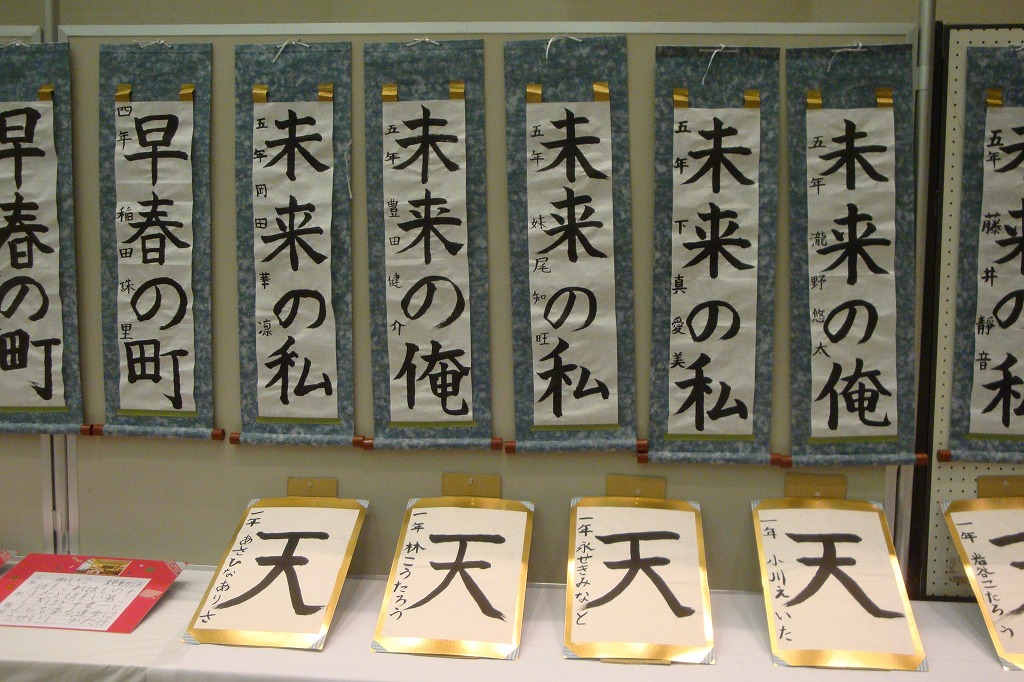 早春の町
四年 稲田 珠里
早春の町
五年 岡田 華凛
未来の私
五年 豊田 健介
未来の俺
五年 妹尾 知旺
未来の私
五年 下 真愛美
未来の私
五年 瀧野 悠太
未来の俺
五年 藤井 靜音
未来の私
一年 あさひなありさ
天
一年 林こうたろう
天
一年 永せきみなと
天
一年 小川えいた
天
一年 岩谷こたろう